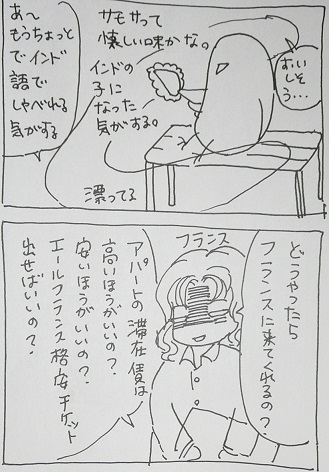 おいし
そう…
サモサって
懐しい味かな。
インドの
子に
なった
気がする。
あ〜
もうちょっと
でインド
語で
しゃべれる
気がする
漂ってる
フランス
どうやったら
フランスに来てくれるの?
アパートの滞在費は
高いほうがいいの?
安いほうがいいの?
エールフランス格安チケット
出せばいいの?